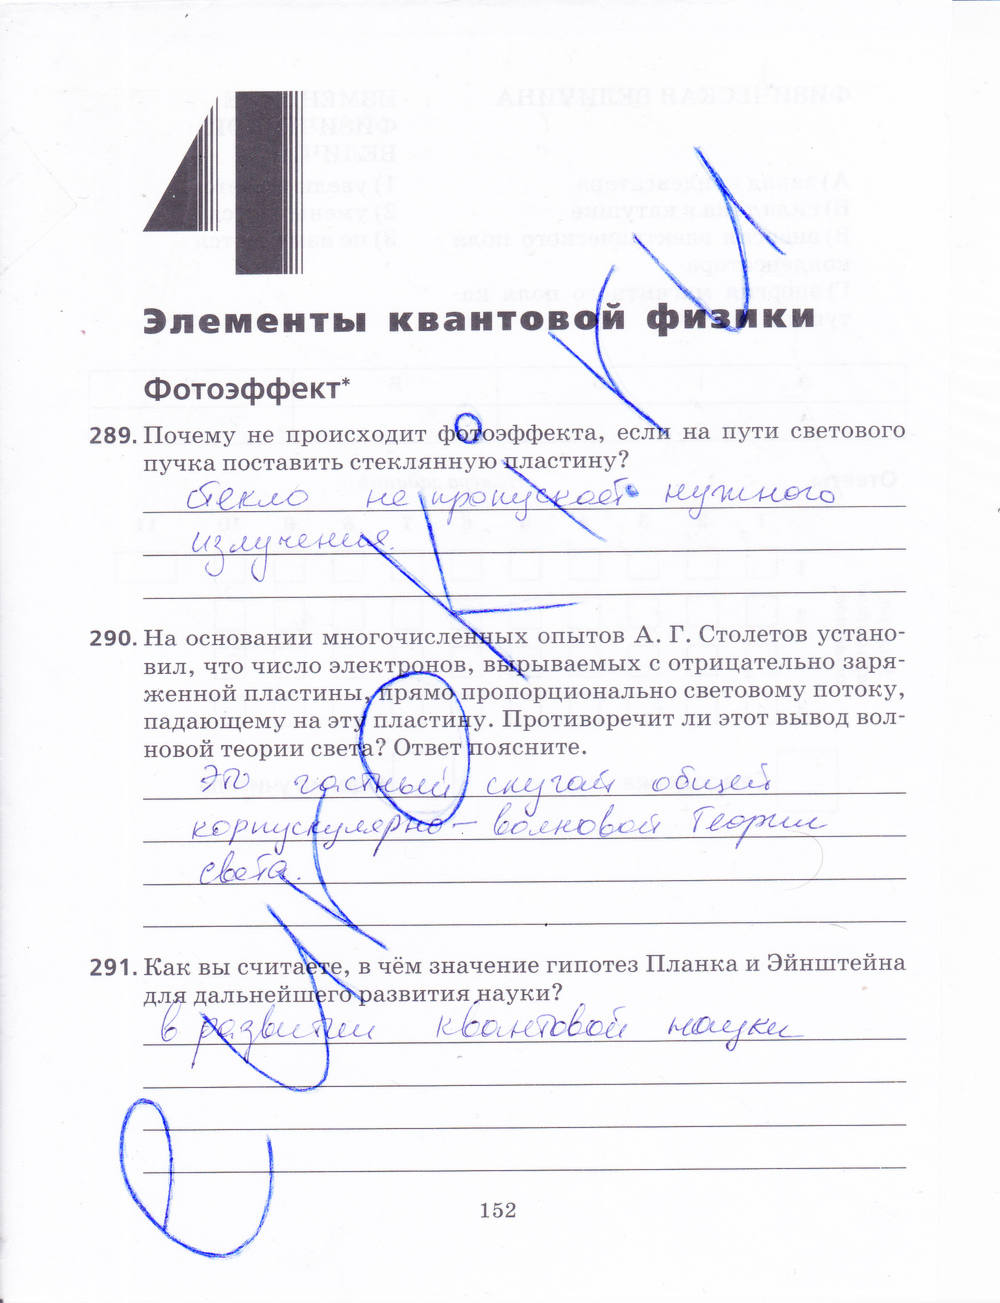 4
Элементы квантовой физики
Фотоэффект*
289. Почему не происходит фотоэффекта, если на пути светового
пучка поставить стеклянную пластину?
стекло не пропускает нужного
излучения.
290. На основании многочисленных опытов А. Г. Столетов устано-
вил, что число электронов, вырываемых с отрицательно заря-
женной пластины, прямо пропорционально световому потоку,
падающему на эту пластину. Противоречит ли этот вывод вол-
новой теории света? Ответ поясните.
это частный случай общей
корпускулярно-волновой теории
света.
291. Как вы считаете, в чём значение гипотез Планка и Эйнштейна
для дальнейшего развития науки?
в развитии квантовой науки
152